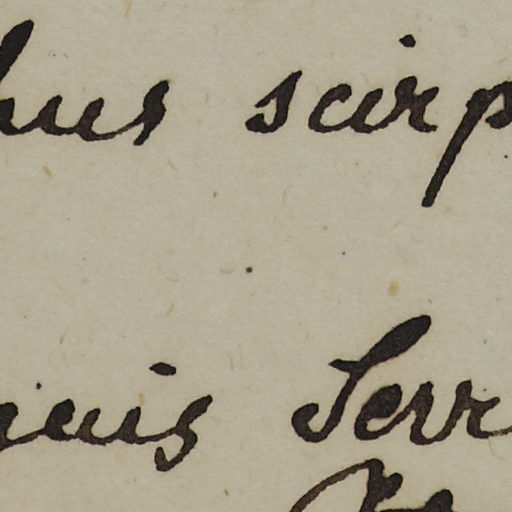 hus scirp
quis Serr